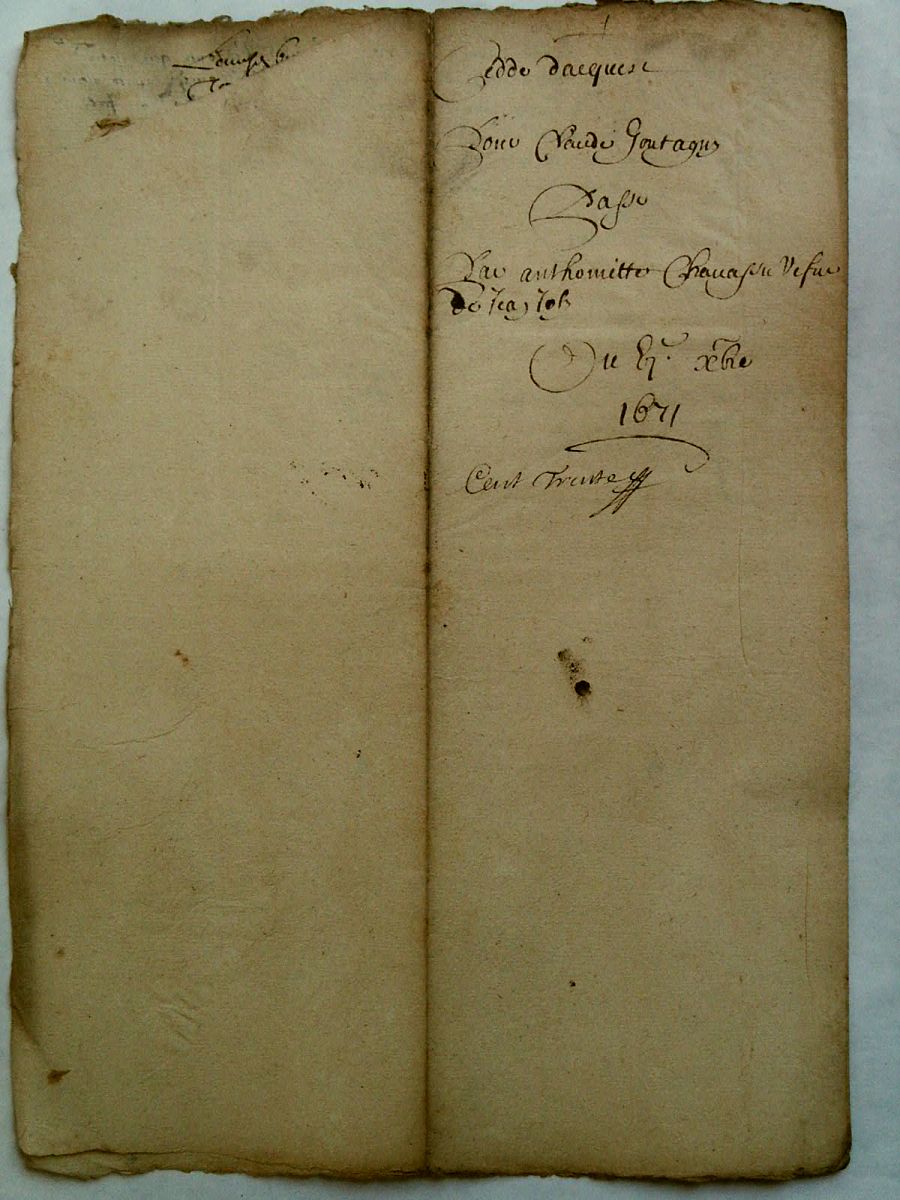 Cedde dacquest
Pour Claude Goutagny
Passe
Par anthoinette Chauasse Vefue
de Jean
Du xbre
1671
Cent Trente